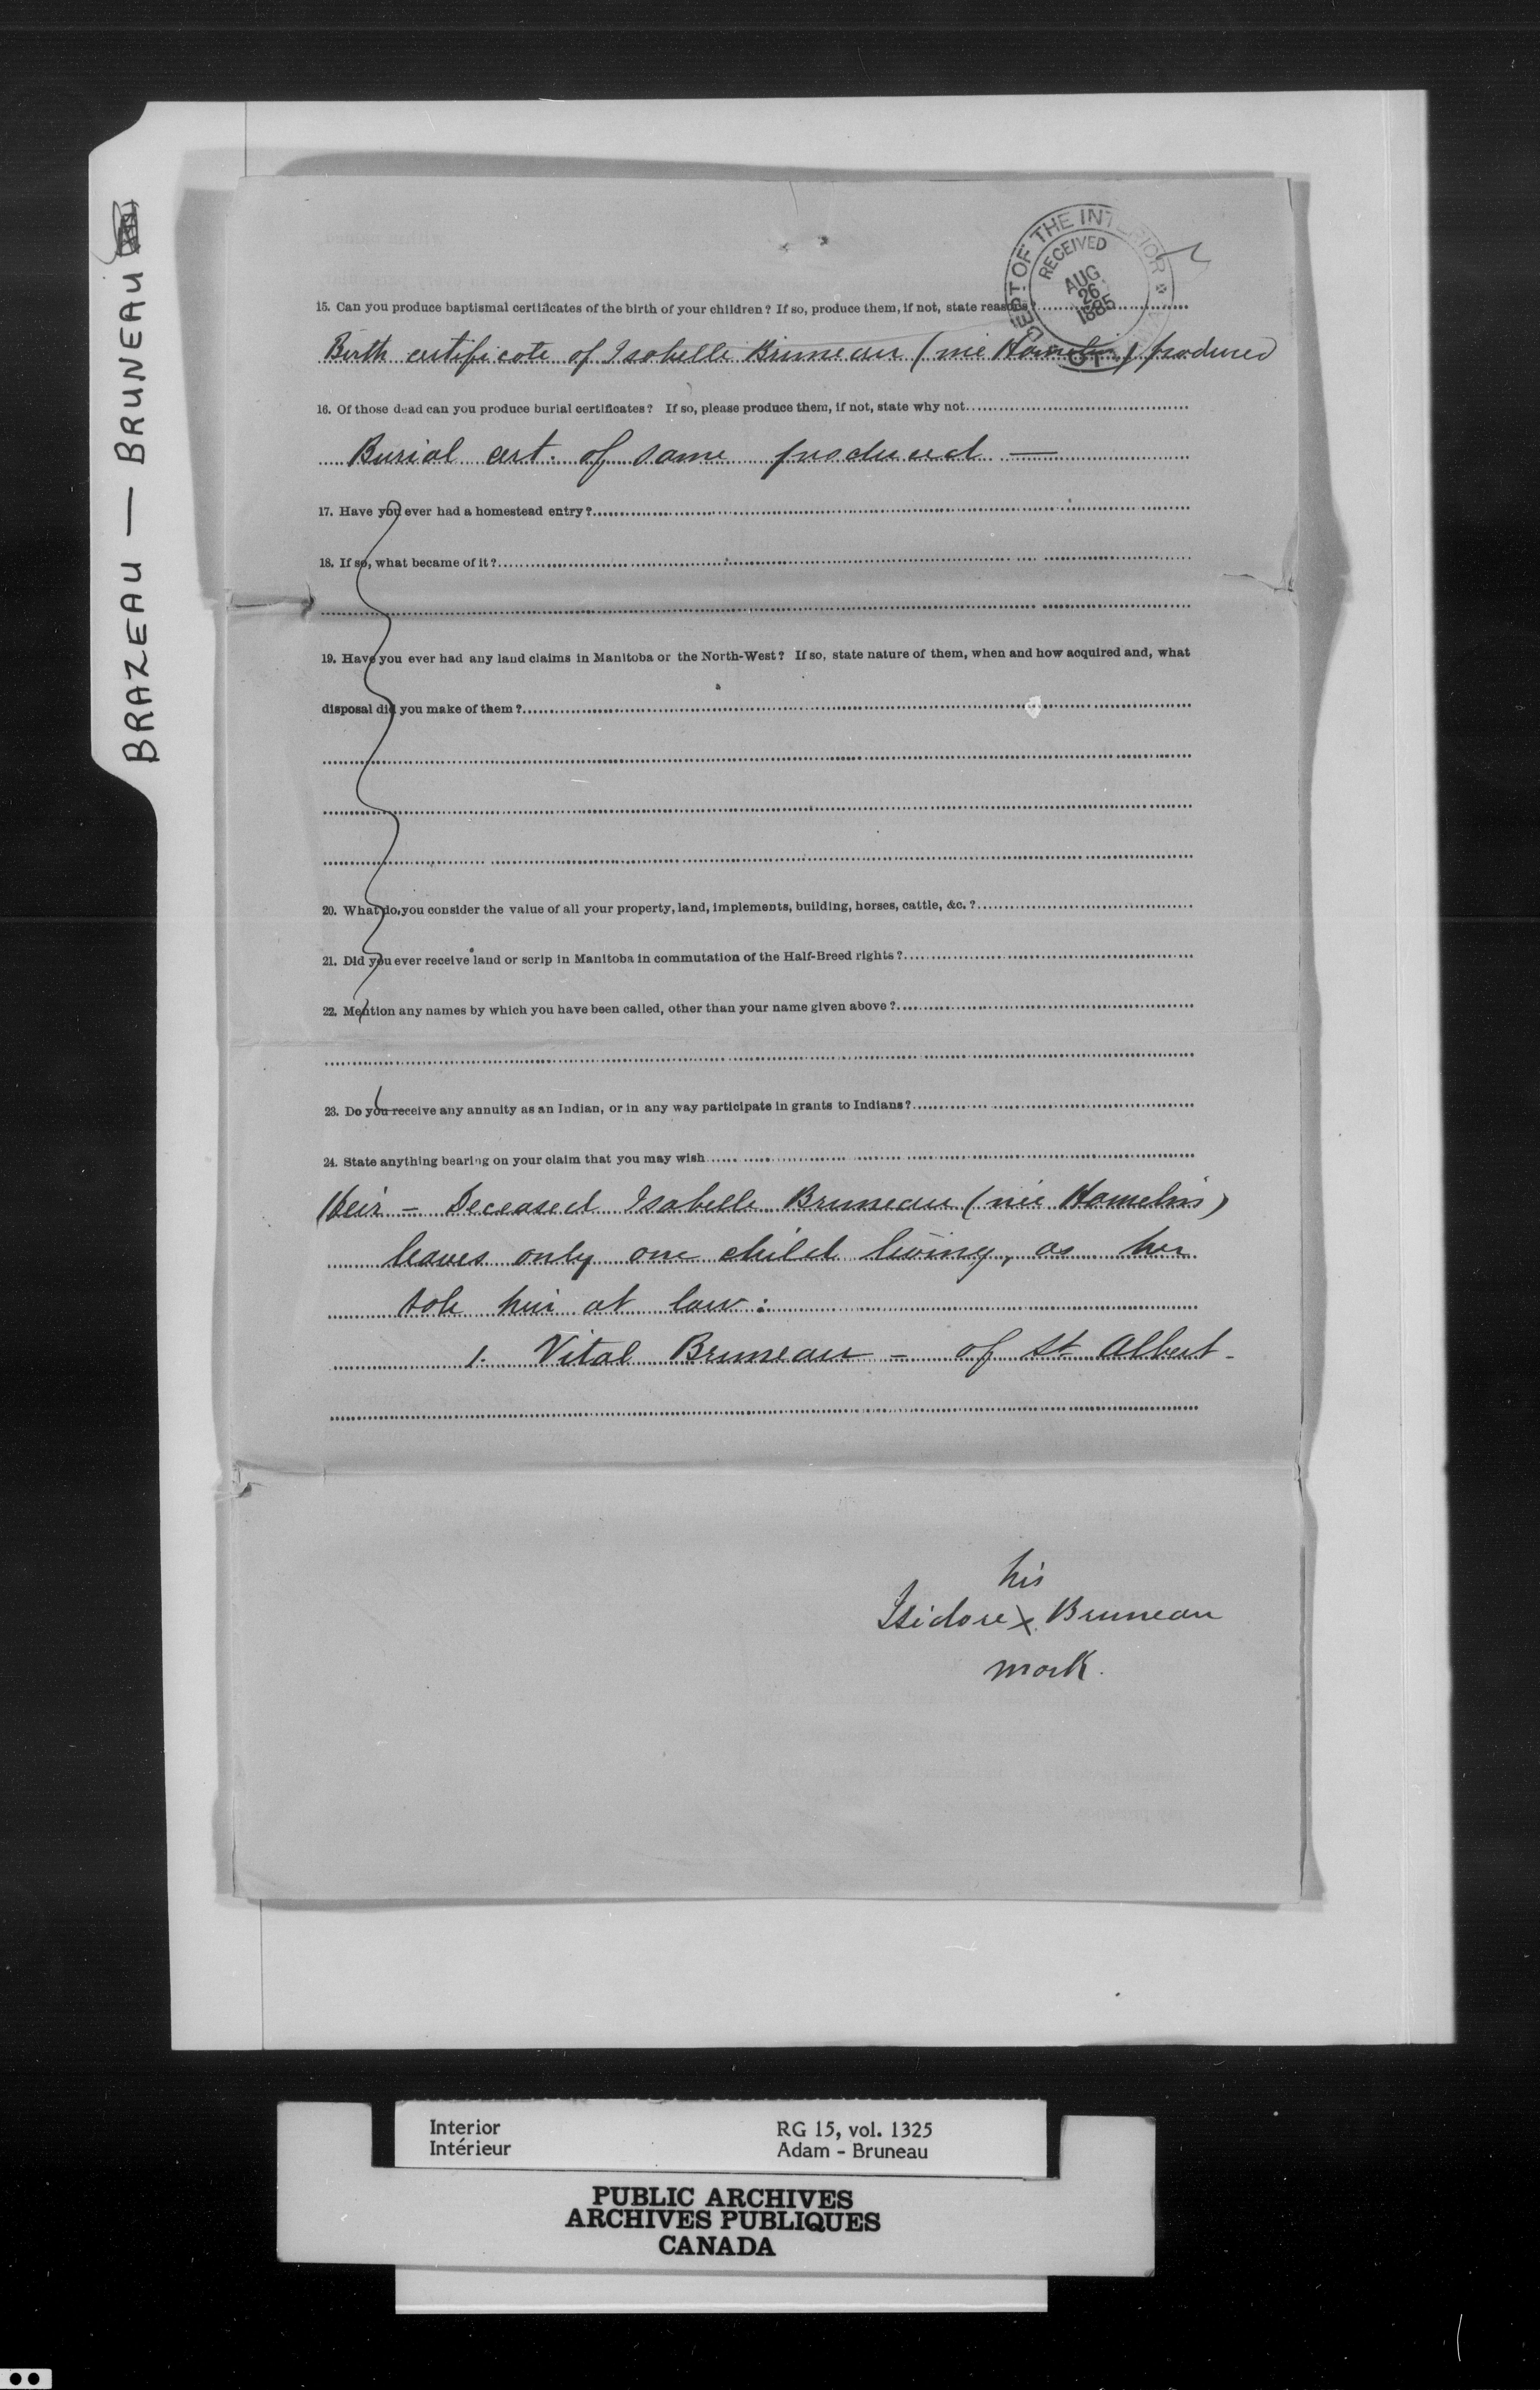 BRAZEAU — BRUNEAU
DEPT. OF THE INTERIOR
RECEIVED
AUG
26
1885
15. Can you produce baptismal certificates of the birth of your children? If so, produce them, if not, state reasons?
Birth certificate of Isabelle Bruneau (née Hamelin) produced
16. Of those dead can you produce burial certificates? If so, please produce them, if not, state why not
Burial cert. of same produced —
17. Have you ever had a homestead entry?
18. If so, what became of it?
19. Have you ever had any land claims in Manitoba or the North-West? If so, state nature of them, when and how acquired and, what
disposal did you make of them?
20. What do you consider the value of all your property, land, implements, building, horses, cattle, &c.?
21. Did you ever receive land or scrip in Manitoba in commutation of the Half-Breed rights?
22. Mention any names by which you have been called, other than your name given above?
23. Do you receive any annuity as an Indian, or in any way participate in grants to Indians?
24. State anything bearing on your claim that you may wish
Heir – Deceased Isabelle Bruneau (née Hamelin)
leaves only one child living, as her
sole heir at law:
1. Vital Bruneau – of St Albert –
his
Isidore X Bruneau
mark.
Interior
Intérieur
RG 15, vol. 1325
Adam - Bruneau
PUBLIC ARCHIVES
ARCHIVES PUBLIQUES
CANADA